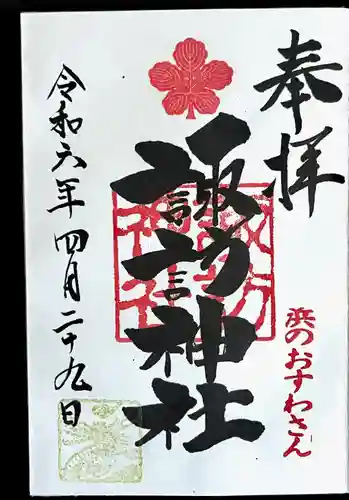 奉拝
諏訪神社
諏訪
神社
浜のおすわさん
令和六年四月二十九日